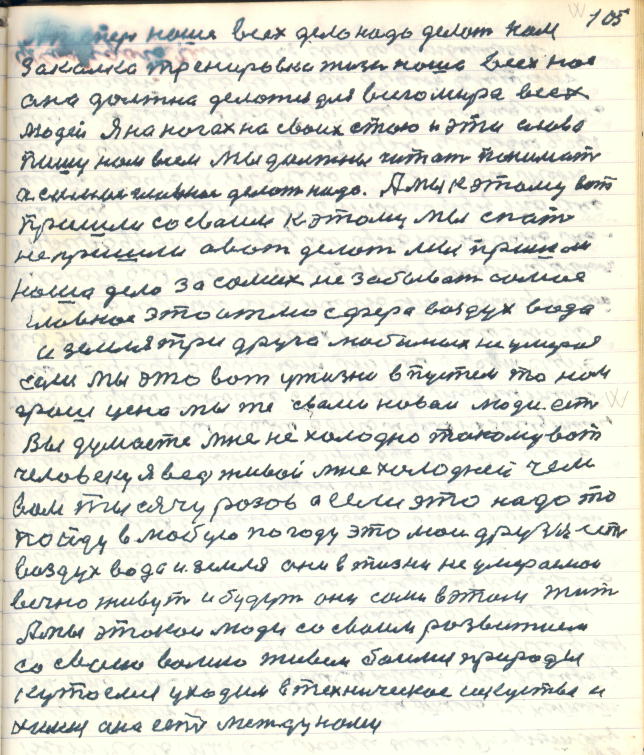 105
А теперь наша всех дело надо делат нам
Закалка тренировка жизн наша всех нас
она должна делатся для всего мира всех
людей Я на ногах на своих стою и эти слова
пишу нам всем мы должны читат понимат
а самое главное делат надо. А мы к этому вот
пришли со своим к этому мы спат
не пришли а вот делат мы пришли
наша дело за самих не забыват самое
главное это атмосфера воздух вода
и земля три друга любимых не умирая
если мы это вот у жизни впустем то нам
грош цена мы же с вами новаи люди ест
Вы думаете мне не холодно такому вот
человеку я вед живой мне холодней чем
вам тысячу разов а если это надо то
пойду в любую погоду это мои друзья ест
воздух вода и земля они в жизни не умираемои
вечно живут и будут они сами в этом жит
А мы этакои люди со своим развитием
со своею волею живем боимся природы
кутаемся уходим в техническое искуства и
химия она ест между нами